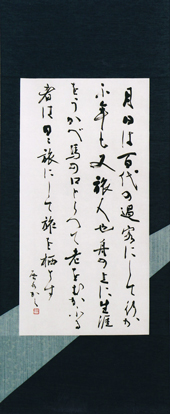 月日は百代の過客にして行か
ふ年も又旅人也舟の上に生涯
をうかべ馬の口とらへて老をむかふる
者は日々旅にして旅を栖とす